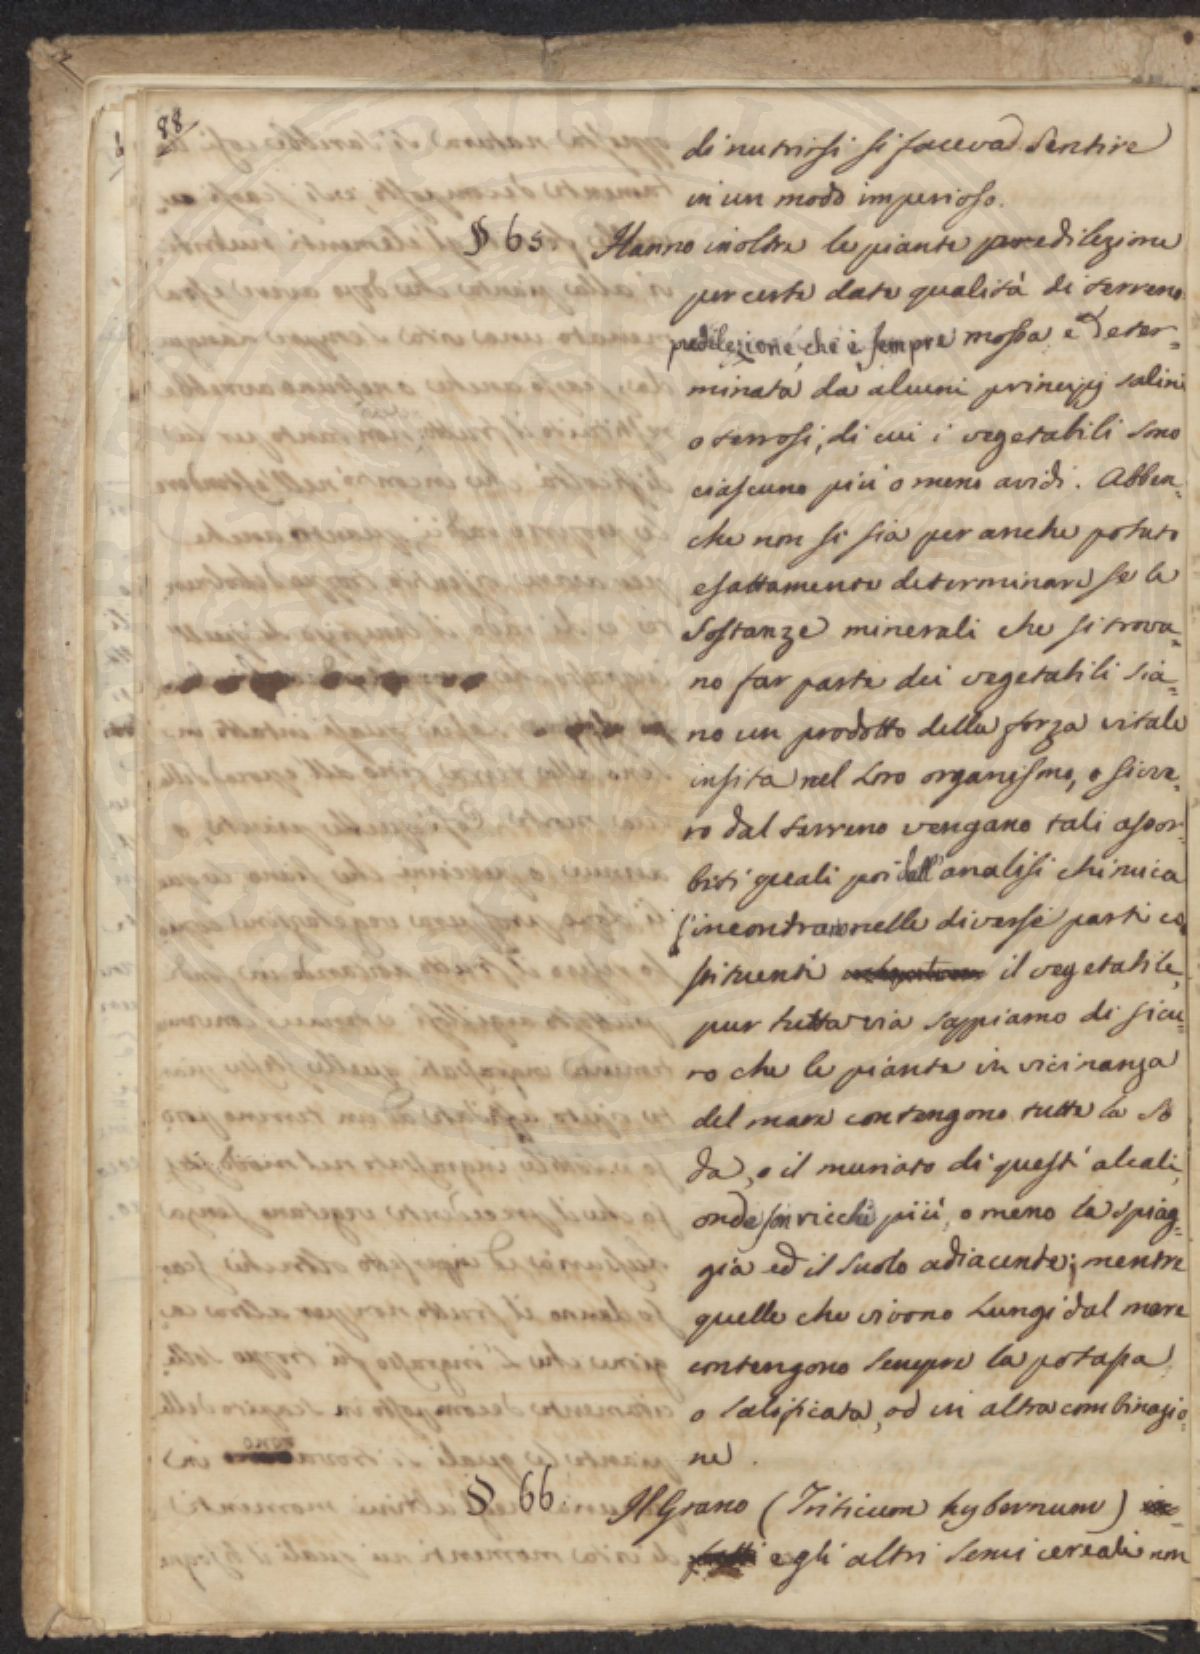 88
di nutrirsi si faceva sentire
in un modo imperioso.
§ 65. Hanno inoltre le piante predilezione
per certe date qualità di terreno
predilezione, che è sempre mossa e deter=
minata da alcuni principj salini
o terrosi, di cui i vegetabili sono
ciascuno più o meno avidi. Abben=
che non si sia per anche potuto
esattamente determinare se le
sostanze minerali che si trova=
no far parte dei vegetabili sia=
no un prodotto della forza vitale
insita nel loro organismo, o sivve=
ro dal terreno vengano tali assor=
biti quali poi dall'analisi chimica
s'incontrano nelle diverse parti co=
stituenti il vegetabile,
pur tutta via sappiamo di sicu=
ro che le piante in vicinanza
del mare contengono tutte la so
da, o il muriato di questi alcali,
onde son ricchi più, o meno la spiag=
gia ed il suolo adiacente; mentre
quelle che vivono lungi dal mare
contengono sempre la potassa
o salificata, od in altra combinazio=
ne.
§ 66. Il Grano (Triticum hybernum)
e gli altri semi cereali non